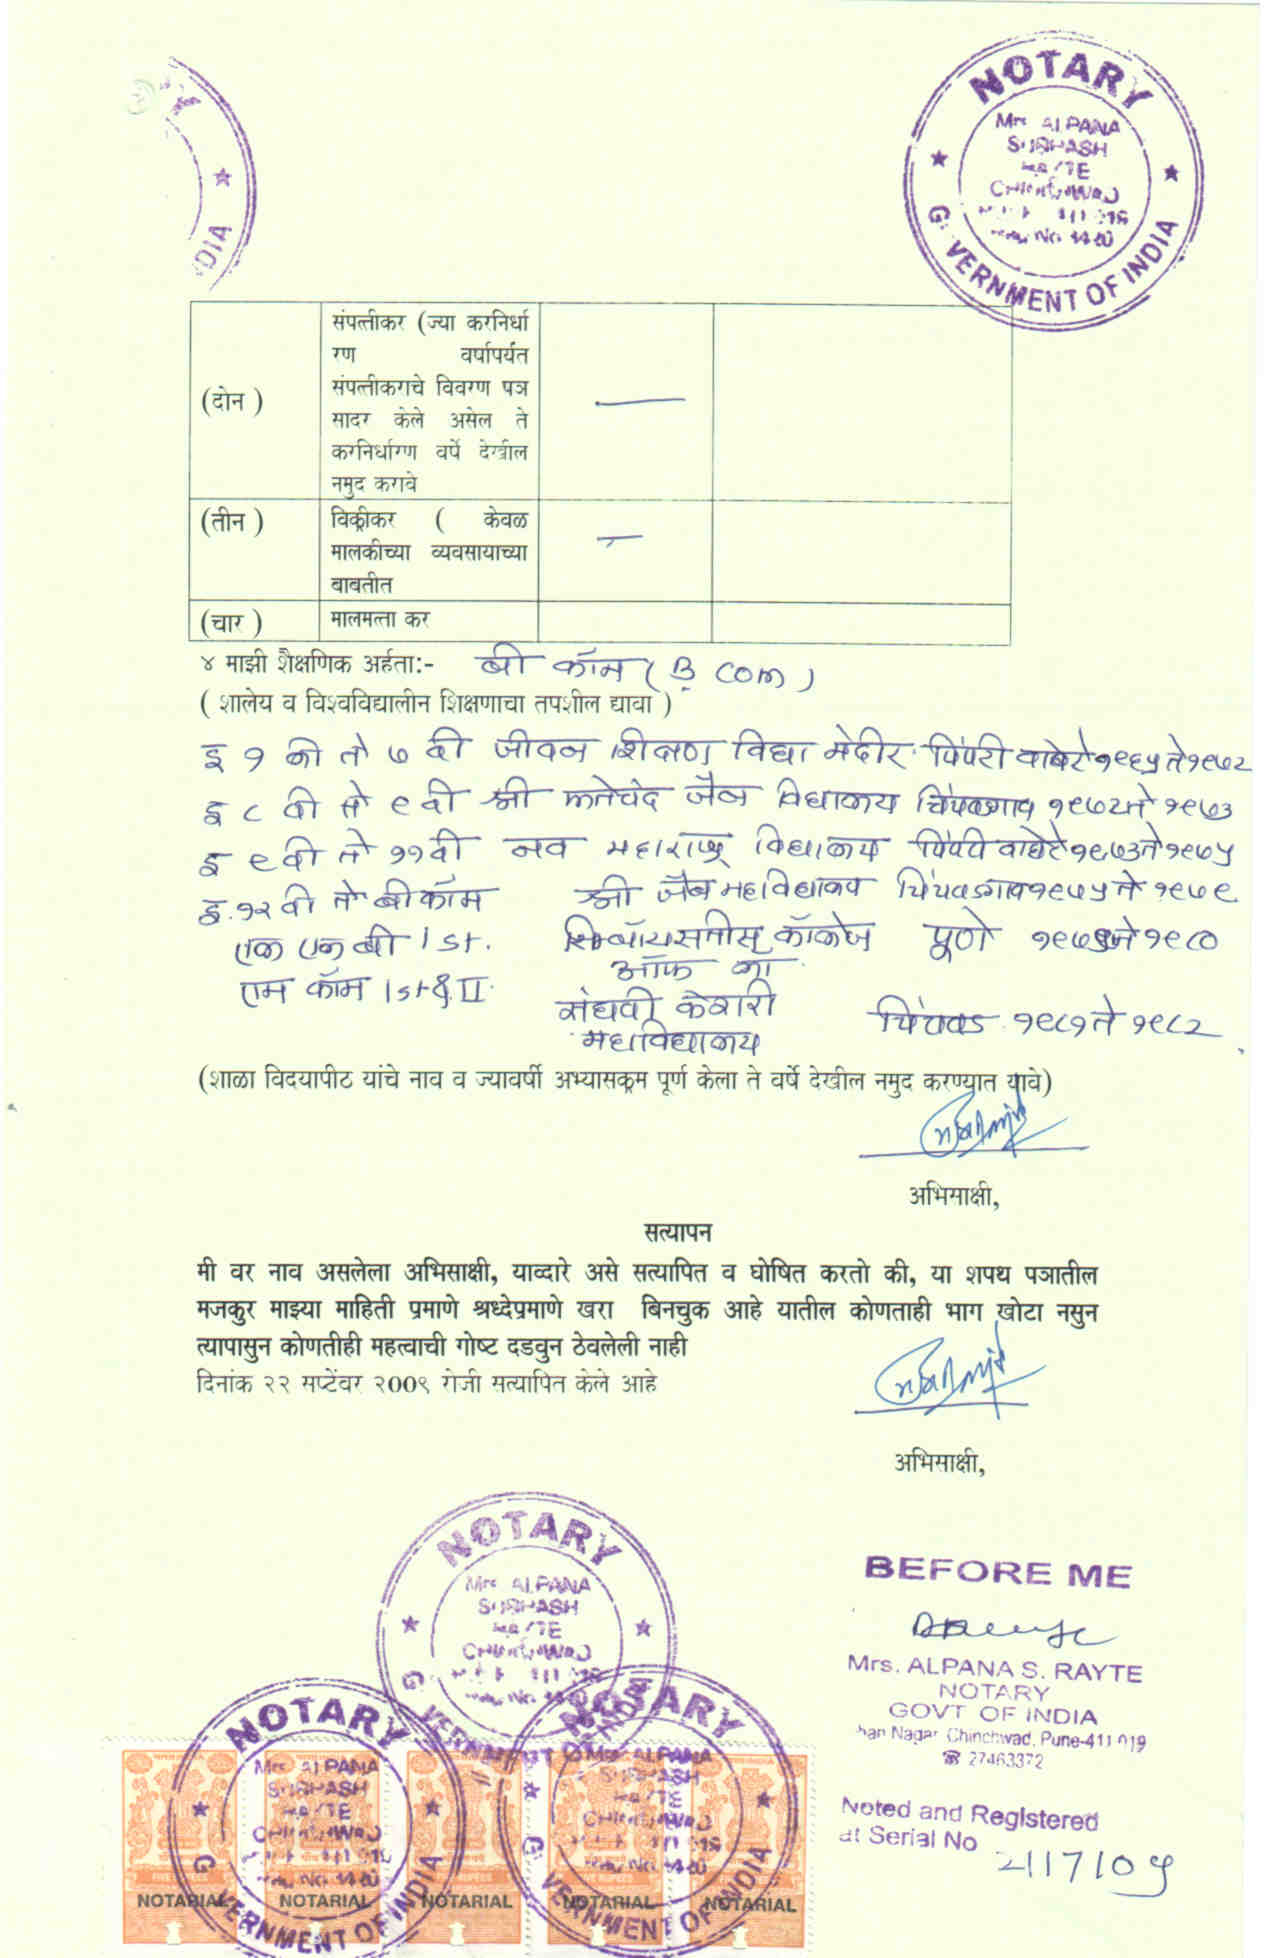 NOTARY
Mrs ALPANA
SUBHASH
RAYTE
CHINCHWAD
GOVERNMENT OF INDIA
(दोन )
संपत्तीकर (ज्या करनिर्धा
रण वर्षापर्यंत
संपत्तीकराचे विवरण पत्र
सादर केले असेल ते
करनिर्धारण वर्षे देखील
नमुद करावे
(तीन )
विक्रीकर ( केवळ
मालकीच्या व्यवसायाच्या
बाबतीत
(चार )
मालमत्ता कर
४ माझी शैक्षणिक अर्हता:- बी कॉम ( B. com )
( शालेय व विश्वविद्यालीन शिक्षणाचा तपशील द्यावा )
इ १ ली ते ७ वी जीवन शिक्षण विद्या मंदीर पिंपरी वाघेरे १९६५ ते १९७२
इ ८ वी ते ९ वी श्री फतेचंद जैन विद्यालय चिंचवडगाव १९७२ ते १९७३
इ ९ वी ते ११ वी नव महाराष्ट्र विद्यालय पिंपरी वाघेरे १९७३ ते १९७५
इ. १२ वी ते बी कॉम श्री जैन महाविद्यालय चिंचवडगाव १९७५ ते १९७९
एल एल बी Ist. सिम्बॉयसेीस कॉलेज पूणे १९७९ ते १९८०
ऑफ लॉ
एम कॉम Ist & II संघवी केशरी चिंचवड १९८१ ते १९८२
महाविद्यालय
(शाळा विदयापीठ यांचे नाव व ज्यावर्षी अभ्यासक्रम पूर्ण केला ते वर्षे देखील नमुद करण्यात यावे)
अभिसाक्षी,
सत्यापन
मी वर नाव असलेला अभिसाक्षी, याव्दारे असे सत्यापित व घोषित करतो की, या शपथ पत्रातील
मजकुर माझ्या माहिती प्रमाणे श्रध्देप्रमाणे खरा बिनचुक आहे यातील कोणताही भाग खोटा नसुन
त्यापासुन कोणतीही महत्वाची गोष्ट दडवुन ठेवलेली नाही
दिनांक २२ सप्टेंवर २००९ रोजी सत्यापित केले आहे
अभिसाक्षी,
NOTARY
Mrs ALPANA
SUBHASH
RAYTE
CHINCHWAD
BEFORE ME
Mrs. ALPANA S. RAYTE
NOTARY
GOVT OF INDIA
Nagar Chinchwad, Pune-411 019
☎ 27463372
Noted and Registered
at Serial No
2117/09
NOTARY
NOTARY
GOVERNMENT OF INDIA
GOVERNMENT OF INDIA
NOTARIAL NOTARIAL NOTARIAL NOTARIAL NOTARIAL